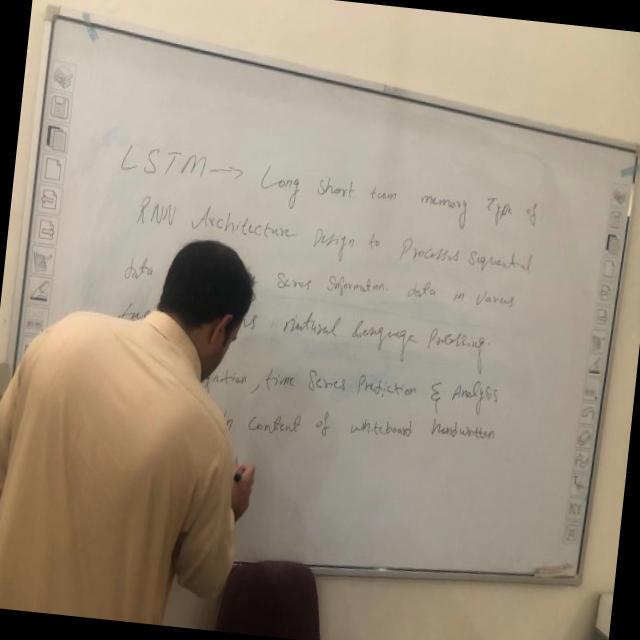 LSTM → Long Short term memory Type of
RNN Architecture Design to Process Sequential
data Series Information data in various
Natural Language Processing.
, time Series Prediction & Analysis
In Content of whiteboard handwritten